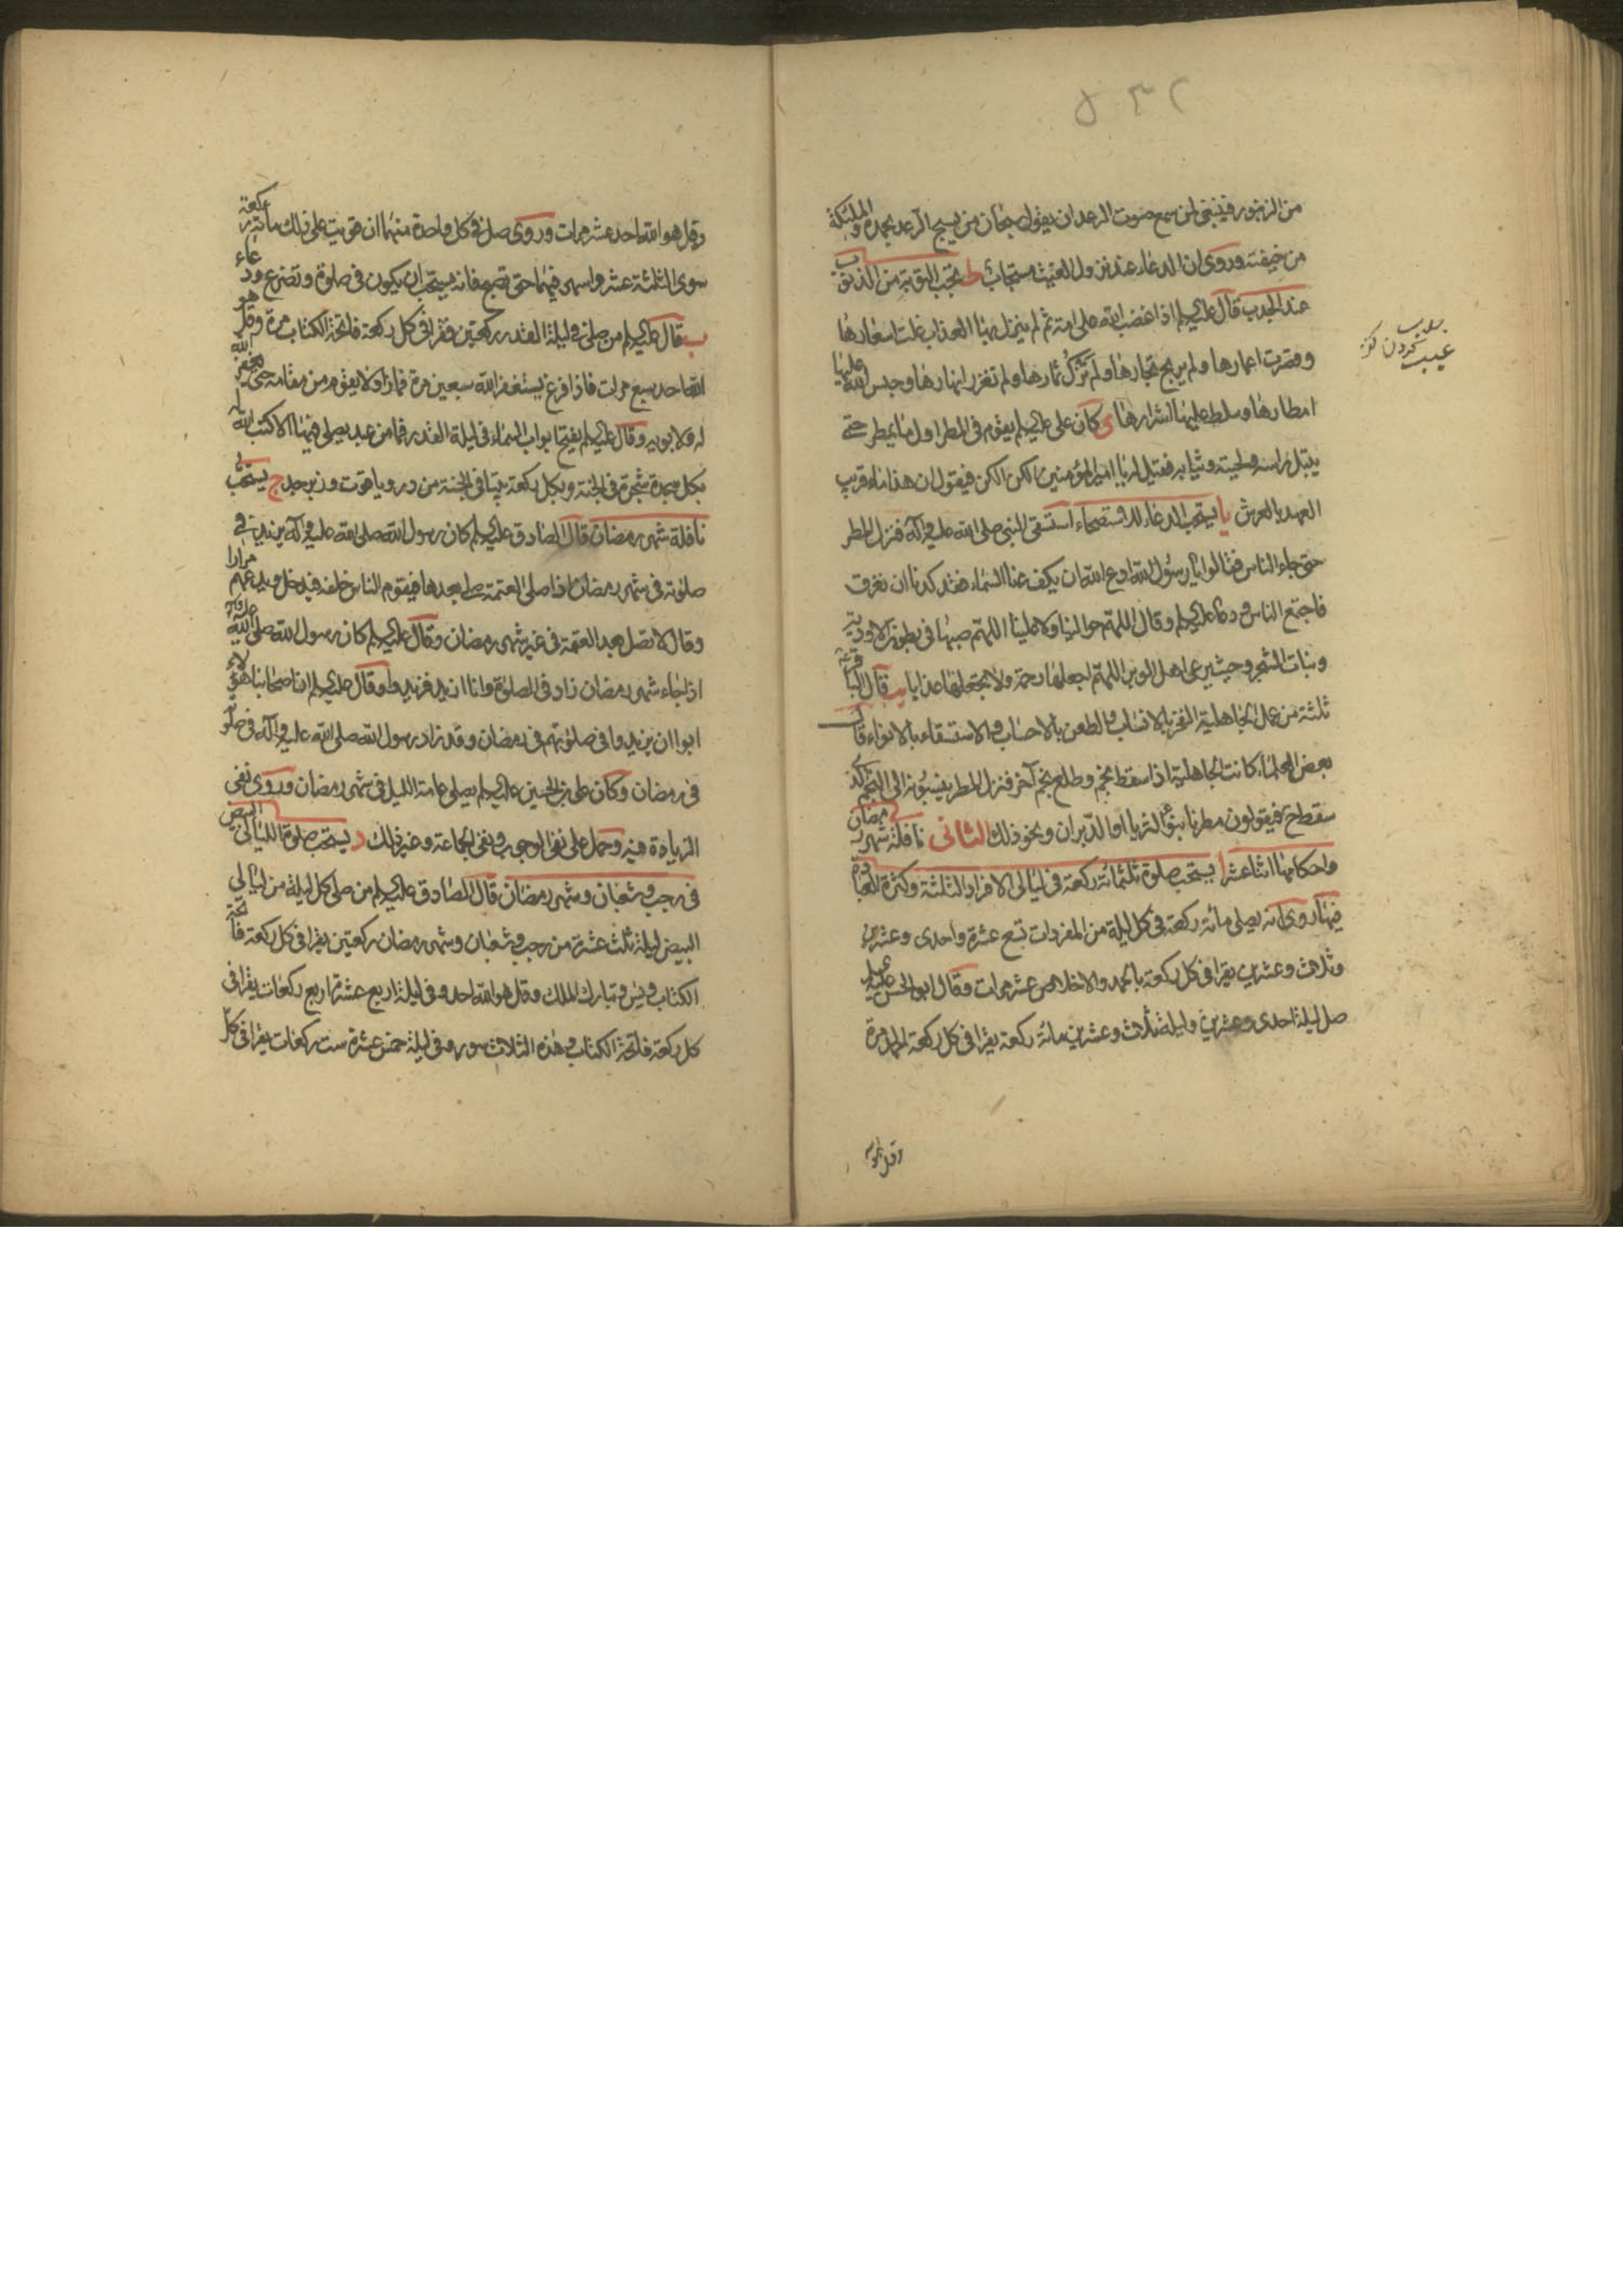 من الزنبور فينبغي لمن سمع صوت الرعد ان يقول سبحان من يسبح الرعد بحمده والملئكة
من خيفته وروى ان الدعاء عند نزول الغيث مستجاب ط يجب التوبة من الذنوب
عند الجدب قال عليه السلم اذا غضب الله على امة ثم لم ينزل بها العذاب غلت اسعارها
وقصرت اعمارها ولم يربح تجارها ولم تزك ثمارها ولم تغزر انهارها وحبس الله عليها
امطارها وسلط عليها اشرارها ى كان على عليه السلم يقوم فى المطر اول ما يمطر حتى
يبتل راسه ولحيته وثيابه فقيل له يا امير المؤمنين الكن الكن فيقول ان هذا ماء قريب
العهد بالعرش يا يستحب الدعاء للاستصحاء استسقى النبى صلى الله عليه وآله فنزل المطر
حتى جاء الناس فقالوا يا رسول الله ادع الله ان يكف عنا السماء فقد كدنا ان نغرق
فاجتمع الناس ودعا عليه السلم وقال اللهم حوالينا ولا علينا اللهم صبها فى بطون الاودية
ونبات الشجر وحيث يرعى اهل الوبر اللهم اجعلها رحمة ولا تجعلها عذابا يب قال الباقر
ثلثة من عمل الجاهلية الفخر بالانساب والطعن بالاحساب والاستسقاء بالانواء قال
بعض العلماء كانت الجاهلية اذا سقط نجم وطلع نجم آخر فنزل المطر ينسبونه الى النجم الذى
سقط ح فيقولون مطرنا بنؤ الثريا او الدبران ونحو ذلك الثانى نافلة شهر رمضان
واحكامها اثنا عشر ا يستحب صلوة ثلثمائة ركعة فى ليالى الافراد الثلثة وكثرة العبادة
فيها روى انه يصلى مائة ركعة فى كل ليلة من المفردات تسع عشرة واحدى وعشرين
وثلاث وعشرين يقرا فى كل ركعة بالحمد والاخلاص عشر مرات وقال ابو الحسن عليه السلم
صل ليلة احدى وعشرين وليلة ثلاث وعشرين مائة ركعة يقرا فى كل ركعة الحمد مرة
وقل هو
عيب
وقل هو الله احد عشر مرات وروى صل فى كل واحدة منهما ان قويت على ذلك مائة ركعة
سوى الثلثة عشر واسهر فيهما حتى تصبح فانه يستحب ان يكون فى صلوة وتضرع ودعاء
ب قال عليه السلم من صلى فى ليلة القدر ركعتين فقرا فى كل ركعة فاتحة الكتاب مرة وقل هو
الله احد سبع مرات فاذا فرغ يستغفر الله سبعين مرة فما زاد لا يقوم من مقامه حتى يغفر الله
له ولابويه وقال عليه السلم يفتح ابواب السماء فى ليلة القدر فما من عبد يصلى فيها الا كتب الله له
بكل سجدة شجرة فى الجنة وبكل ركعة بيتا فى الجنة من در وياقوت وزبرجد ج يستحب
نافلة شهر رمضان قال الصادق عليه السلم كان رسول الله صلى الله عليه وآله يزيد فى
صلوته فى شهر رمضان اذا صلى العتمة صلى بعدها فيقوم الناس خلفه فيدخل ويدعهم مرارا
وقال لا تصل بعد العتمة فى غير شهر رمضان وقال عليه السلم كان رسول الله صلى الله عليه وآله
اذا جاء شهر رمضان زاد فى الصلوة وانا ازيد فزيدوا وقال عليه السلم ان اصحابنا هؤلاء
ابوا ان يزيدوا فى صلوتهم فى رمضان وقد زاد رسول الله صلى الله عليه وآله فى صلوته
فى رمضان وكان على بن الحسين عليه السلم يصلى عامة الليل فى شهر رمضان وروى نفى
الزيادة فيه وحمل على نفى الوجوب ونفى الجماعة وغير ذلك د يستحب صلوة الليالى البيض
فى رجب وشعبان وشهر رمضان قال الصادق عليه السلم من صلى كل ليلة من ليالى
البيض ليلة ثلث عشرة من رجب وشعبان وشهر رمضان ركعتين يقرا فى كل ركعة فاتحة
الكتاب ويس وتبارك الملك وقل هو الله احد وفى ليلة اربع عشرة اربع ركعات يقرا فى
كل ركعة فاتحة الكتاب وهذه الثلاث سور وفى ليلة خمس عشرة ست ركعات يقرا فى كل